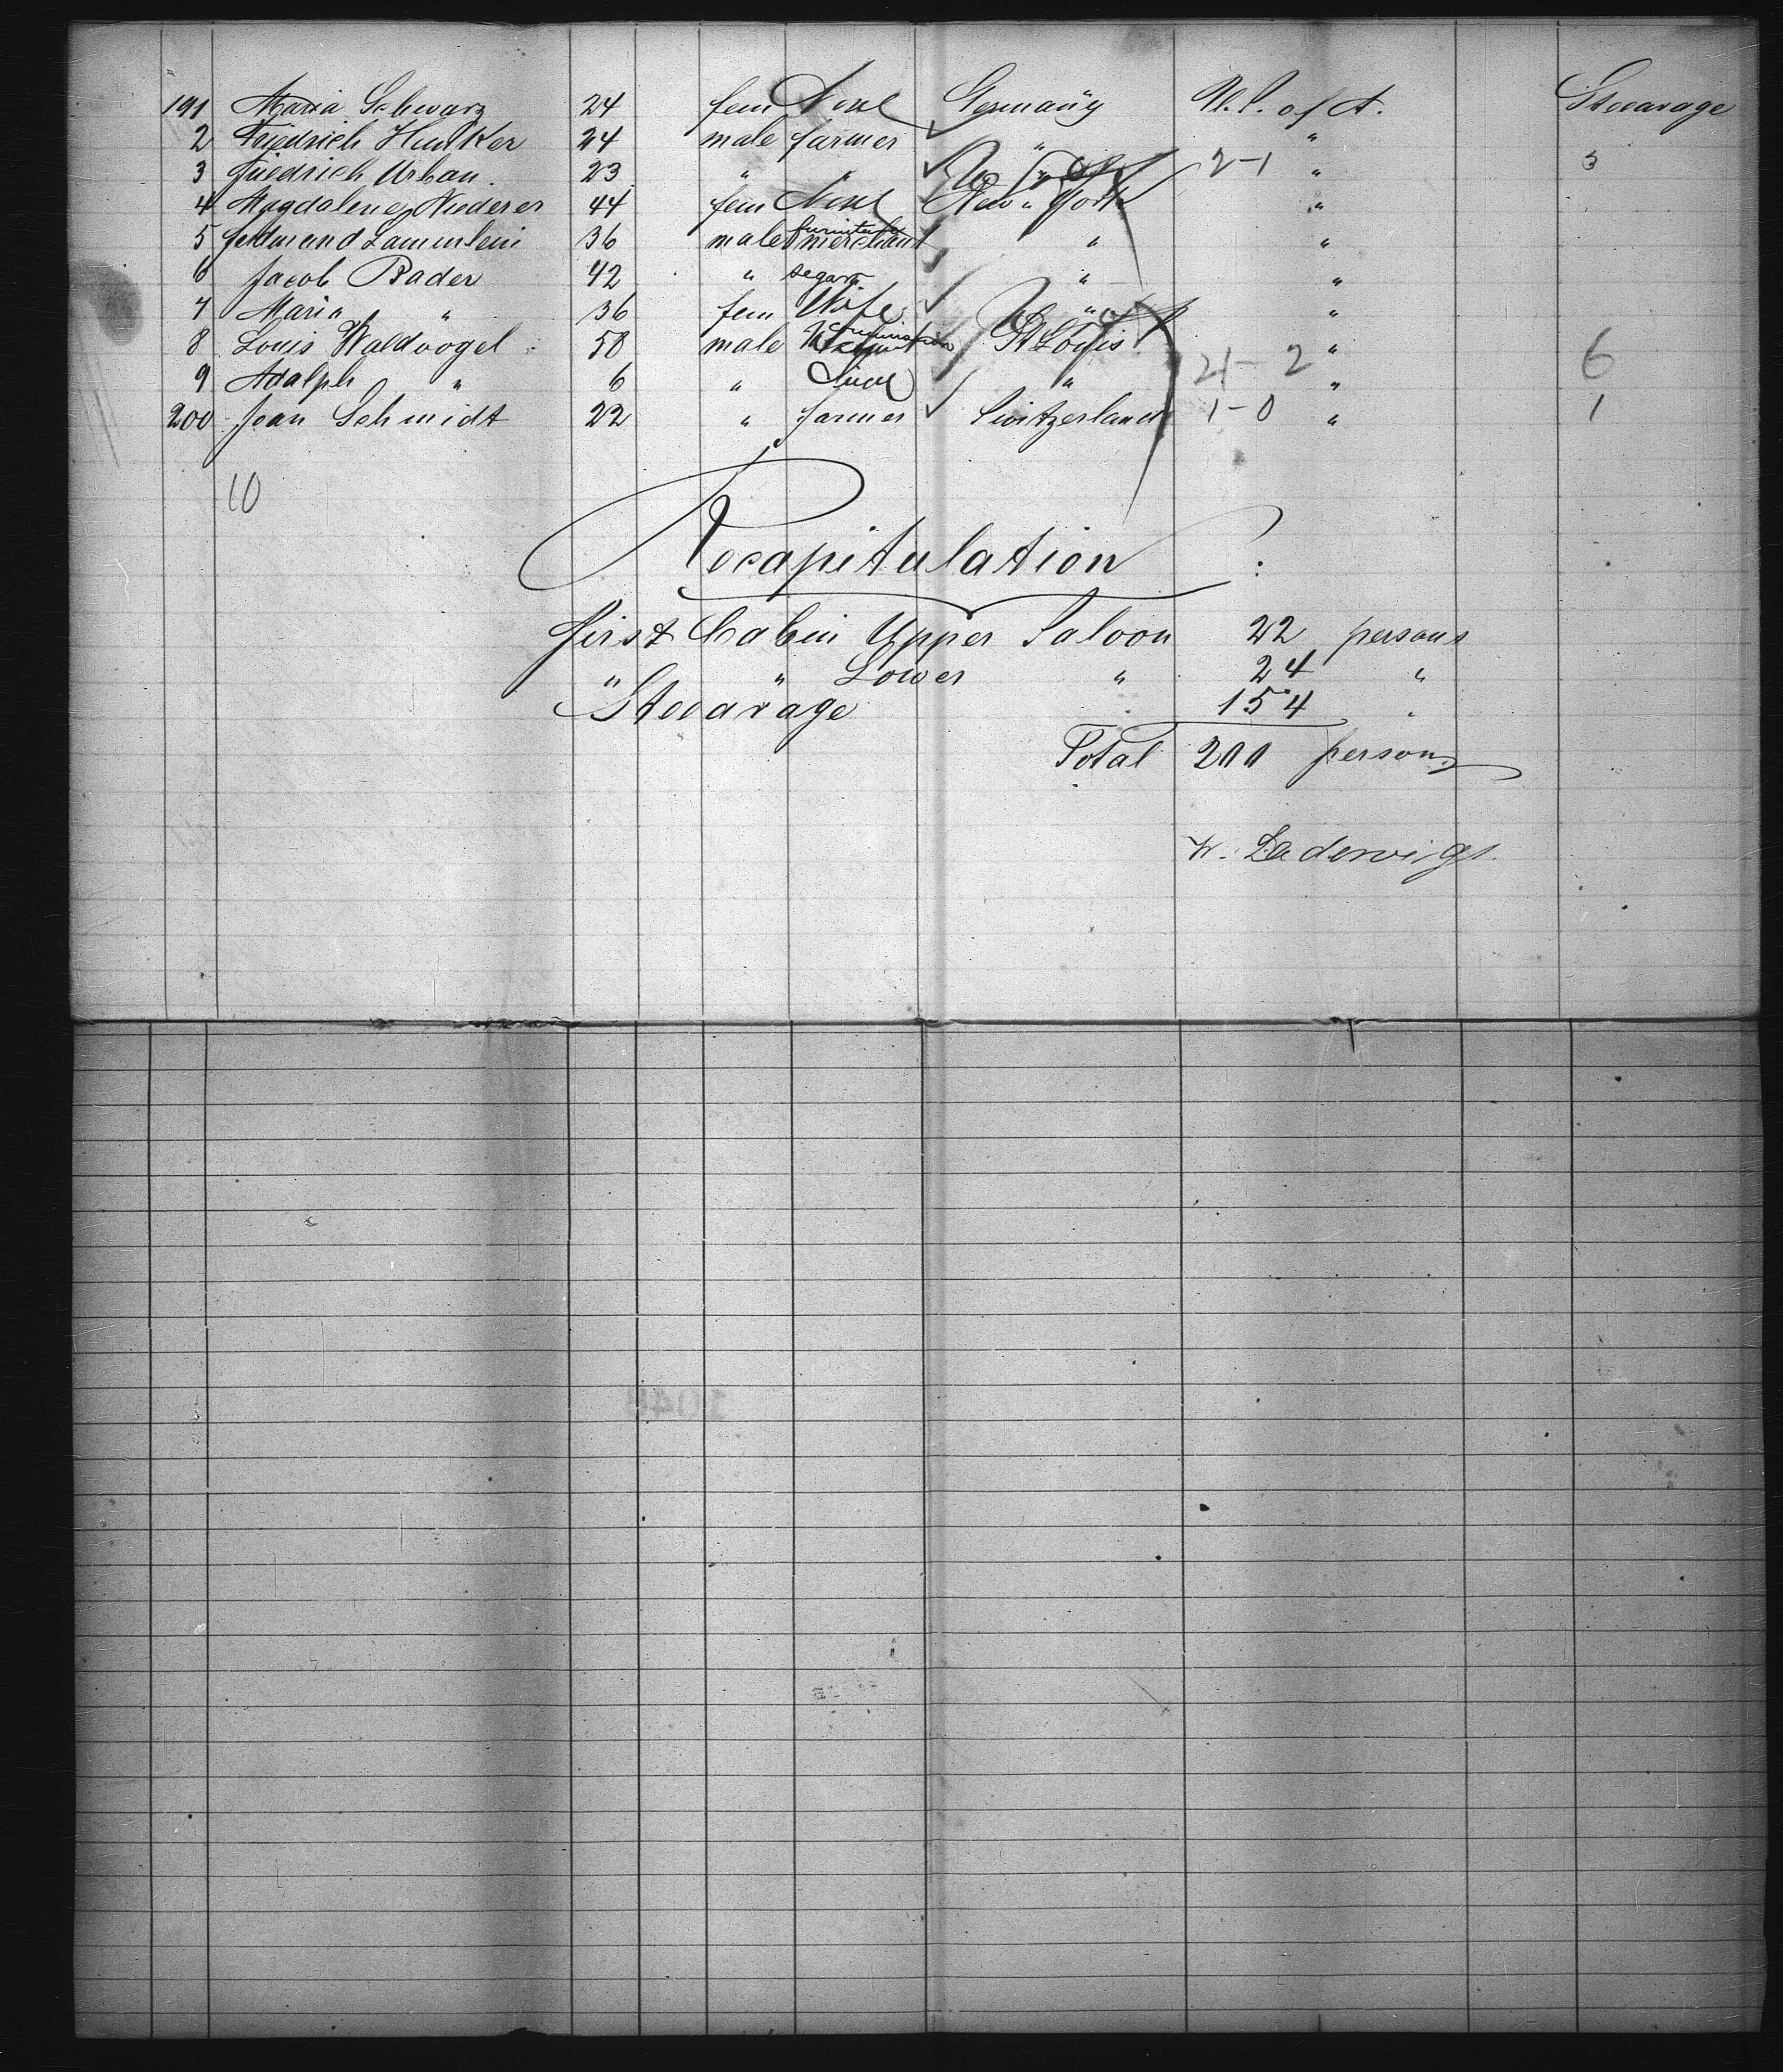 191 Maria Schwarz 24 fem None Germany U.S. of A. Steearage
2 Friedrich Hunker 24 male farmer " "
3 Friedrich Urban. 23 " " " 2-1 " 3
4 Magdalene Niederer 44 fem None New York "
5 Ferdinand Lammlein 36 male furniture merchant " "
6 Jacob Bader 42 " segar " "
7 Maria " 36 fem Wife " "
8 Louis Waldvogel 58 male St Louis "
9 Adalph " 6 " " 4-2 " 6
200 Jean Schmidt 22 " farmer Switzerland 1-0 " 1
10
Recapitulation:
First Cabin Upper Saloon 22 persons
" " Lower " 24 "
Steearage 154 "
Total 200 persons
W. Ladewigs.